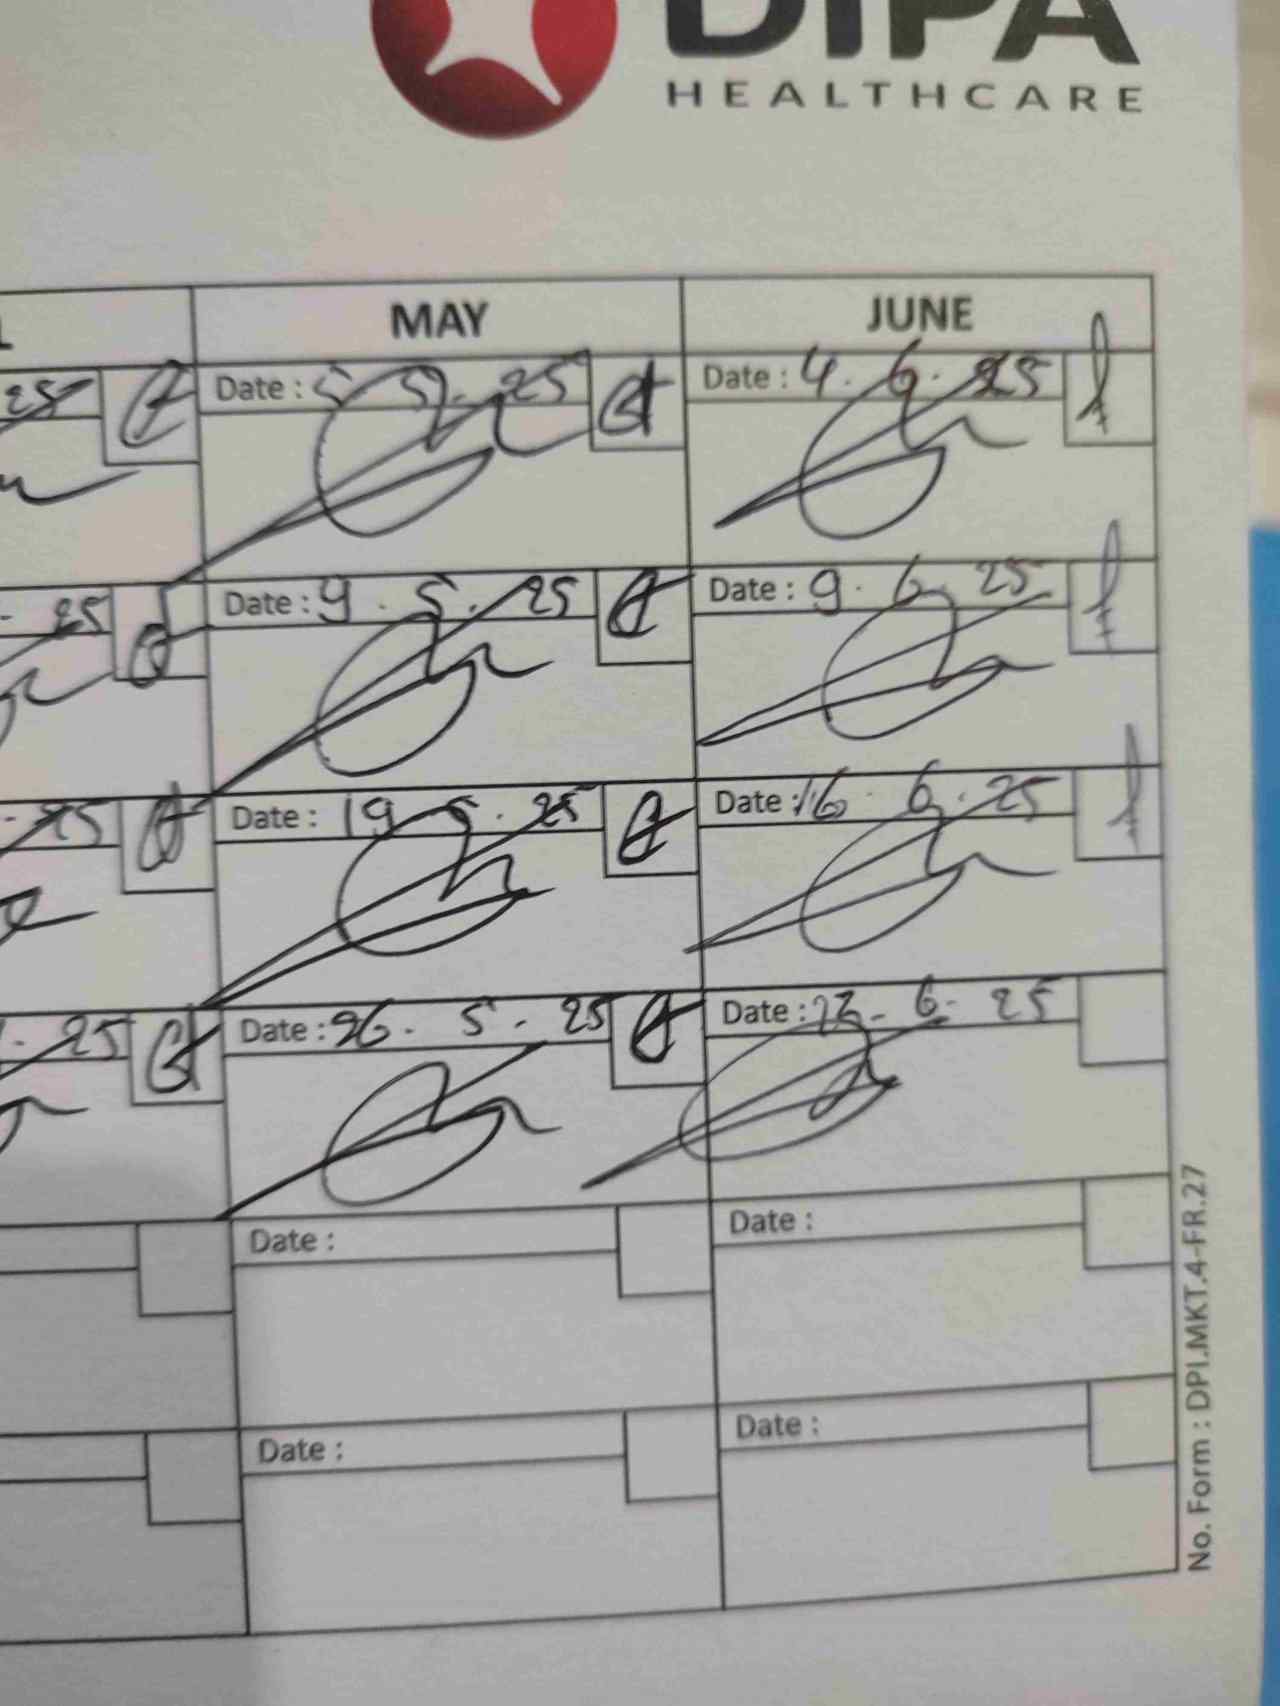 DIPA
HEALTHCARE
MAY JUNE
25 Date : 5 . 5 . 25 Date : 4 . 6 . 25
25 Date : 9 . 5 . 25 Date : 9 . 6 . 25
25 Date : 19 . 5 . 25 Date : 16 . 6 . 25
25 Date : 26 . 5 . 25 Date : . 6 . 25
Date : Date :
Date : Date :
No. Form : DPI.MKT.4-FR.27